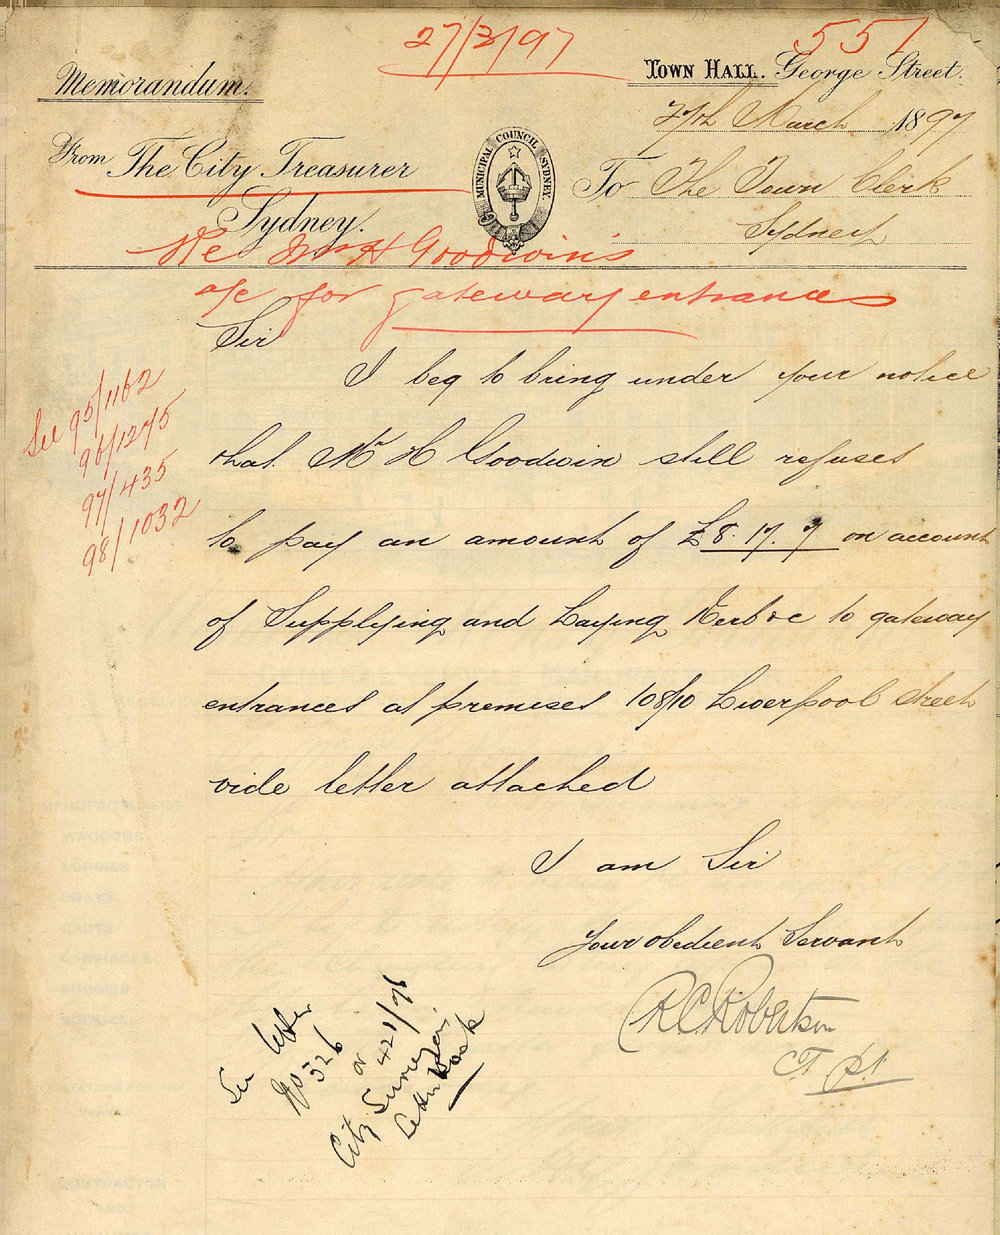 27/3/97
551
Memorandum.
Town Hall. George Street.
27th March 1897
From The City Treasurer
Sydney.
MUNICIPAL COUNCIL SYDNEY.
To The Town Clerk
Sydney
Re Mr H Goodwin's
a/c for gateway entrances
Sir
I beg to bring under your notice
that Mr H Goodwin still refuses
to pay an amount of £8.17.7 on account
of Supplying and Laying Kerb &c to gateway
entrances at premises 108/10 Liverpool Street
vide letter attached
I am Sir
Your obedient Servant
R C Robertson
C T
See 95/1162
96/1275
97/435
98/1032
See letter
No 326
or 421/96
City Surveyors
Letter Book